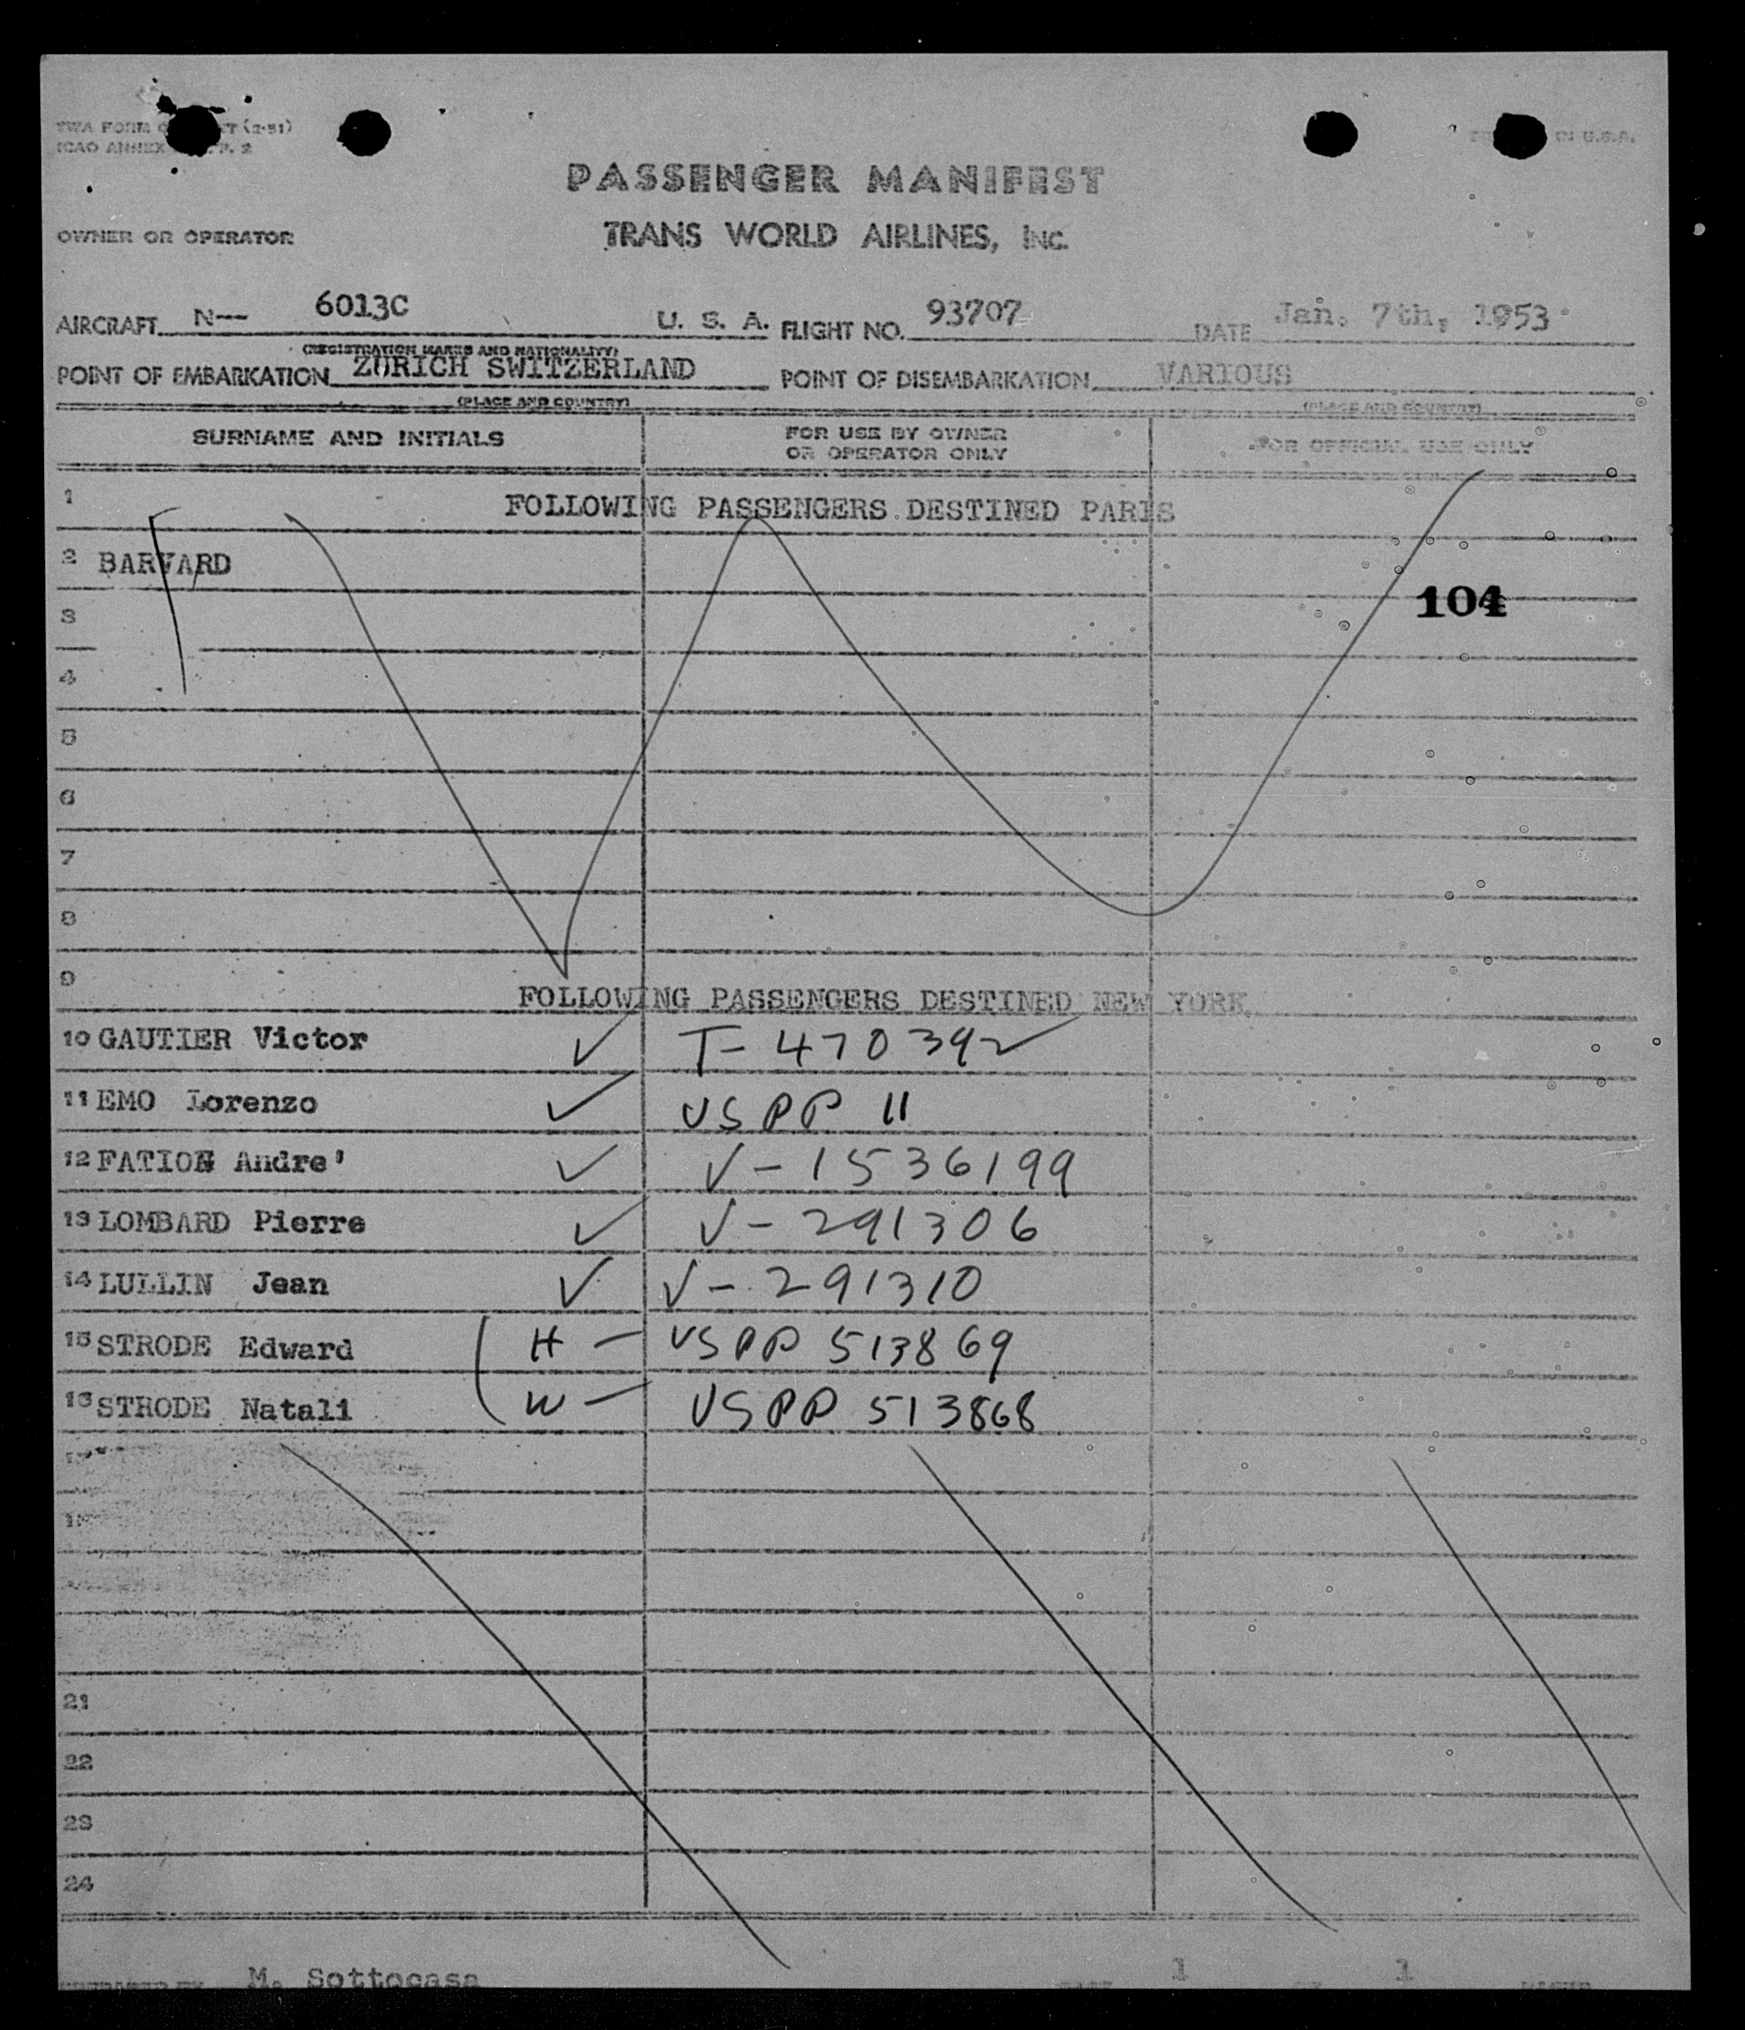 TWA FORM (2-51)
ICAO ANNEX P. 2
IN U.S.A.
PASSENGER MANIFEST
OWNER OR OPERATOR TRANS WORLD AIRLINES, INC.
AIRCRAFT N— 6013C U. S. A. FLIGHT NO. 93707 DATE Jan. 7th, 1953
(REGISTRATION MARKS AND NATIONALITY)
POINT OF EMBARKATION ZURICH SWITZERLAND POINT OF DISEMBARKATION VARIOUS
(PLACE AND COUNTRY) (PLACE AND COUNTRY)
SURNAME AND INITIALS FOR USE BY OWNER OR OPERATOR ONLY FOR OFFICIAL USE ONLY
1 FOLLOWING PASSENGERS DESTINED PARIS
2 BARVARD
104
3
4
5
6
7
8
9 FOLLOWING PASSENGERS DESTINED NEW YORK.
10 GAUTIER Victor ✓ T-470392
11 EMO Lorenzo ✓ USPP 11
12 FATION Andre' ✓ V-1536199
13 LOMBARD Pierre ✓ V-291306
14 LULLIN Jean ✓ V-291310
15 STRODE Edward H - USPP 513869
16 STRODE Natali W - USPP 513868
17
21
22
23
24
PREPARED BY M. Sottocasa 1 OF 1